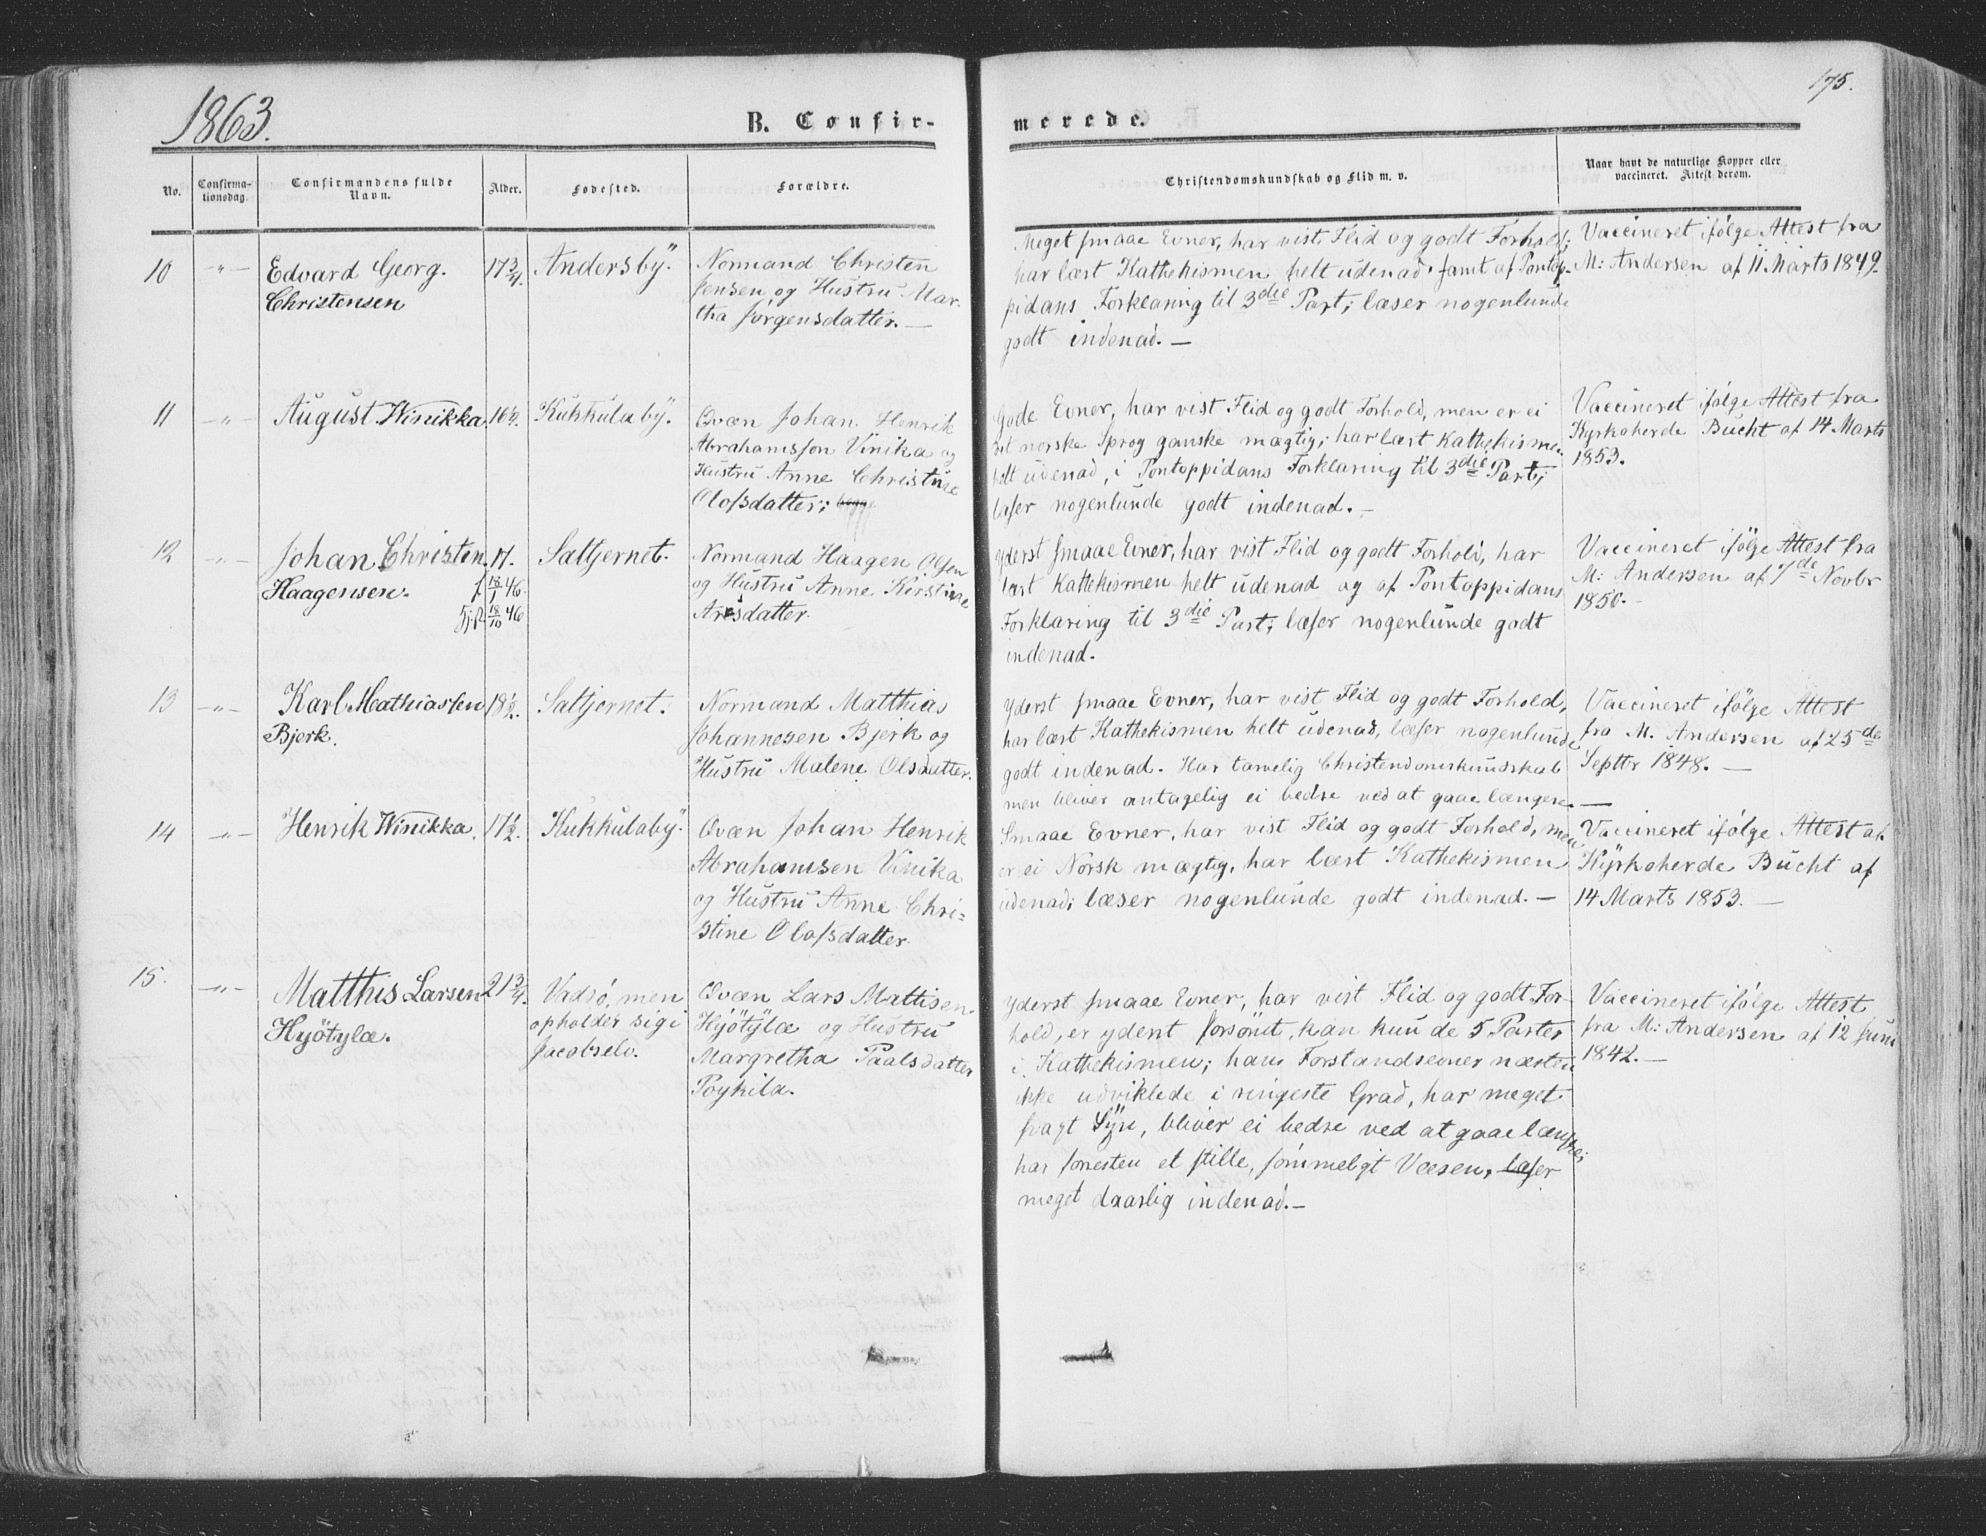 1863.
175.
B. Confir-
merede.
No.
Confirma-
tionsdag.
Confirmandens fulde
Navn.
Alder.
Fødested.
Forældre.
Christendomskundskab og Flid m. v.
Naar havt de naturlige Kopper eller
vaccineret. Attest derom.
10
-"-
Edvard Georg.
Christensen
17 3/4.
Andersbÿ.
Normand Christen
Jensen og Hustru Mar-
tha Jørgensdatter. —
Meget smaae Evner, har vist Flid og godt Forhold;
har læst Kathekismen helt udenad samt af Pontop-
pidans Forklaring til 3die Part; læser nogenlunde
godt indenad. —
Vaccineret ifølge Attest fra
M: Andersen af 11 Marts 1849.
11
-"-
August Winikka
16 1/2.
Kukkulabÿ.
Qvæn Johan Henrik
Abrahamsson Vinika og
Hustru Anne Christine
Olofsdatter;
Gode Evner, har vist Flid og godt Forhold, men er ei
det norske Sprog ganske mægtig; har læst Kathekismen
helt udenad, i Pontoppidans Forklaring til 3die Part;
læser nogenlunde godt indenad. —
Vaccineret ifølge Attest fra
Kyrkoherde Bucht af 14 Marts
1853.
12
-"-
Johan Christen
Haagensen.
17.
f. 18/1 46.
hj. d. 18/10 46
Saltjernet.
Normand Haagen Olsen
og Hustru Anne Kirstine
Aresdatter.
Yderst smaae Evner, har vist Flid og godt Forhold, har
læst Kathekismen helt udenad og af Pontoppidans
Forklaring til 3die Part; læser nogenlunde godt
indenad.
Vaccineret ifølge Attest fra
M: Andersen af 7de Novbr
1850. -
13
-"-
Karl Mathiassen
Bjerk.
18 1/2.
Saltjernet.
Normand Matthias
Johannesen Bjerk og
Hustru Malene Olsdatter.
Yderst smaae Evner, har vist Flid og godt Forhold,
har læst Kathekismen helt udenad, læser nogenlunde
godt indenad. Har tarvelig Christendomskundskab
men bliver antagelig ei bedre ved at gaae længere. —
Vaccineret ifølge Attest
fra M. Andersen af 25de
Septbr 1848. —
14
-"-
Henrik Winikka.
17 1/2.
Kukkulabÿ.
Qvæn Johan Henrik
Abrahamsen Vinika
og Hustru Anne Chri-
stine Olofsdatter.
Smaae Evner, har vist Flid og godt Forhold, men
er ei Norsk mægtig, har læst Kathekismen
udenad; læser nogenlunde godt indenad. —
Vaccineret ifølge Attest af
Kyrkoherde Bucht af
14 Marts 1853. —
15.
-"-
Matthis Larsen
Hyötylæ.
21 3/4.
Vadsø, men
opholder sig i
Jacobselv.
Qvæn Lars Mattisen
Hyötylæ og Hustru
Margretha Paalsdatter
Poykila.
Yderst smaae Evner, har vist Flid og godt For-
hold, er yderst forsømt, kan kun de 5 Parter
i Kathekismen; hans Forstandsevner næsten
ikke udviklede i ringeste Grad, har meget
svagt Syn, bliver ei bedre ved at gaae længere;
har forresten et stille, sømmeligt Væsen, læser
meget daarlig indenad. —
Vaccineret ifølge Attest
fra M: Andersen af 12 Juni
1842. —